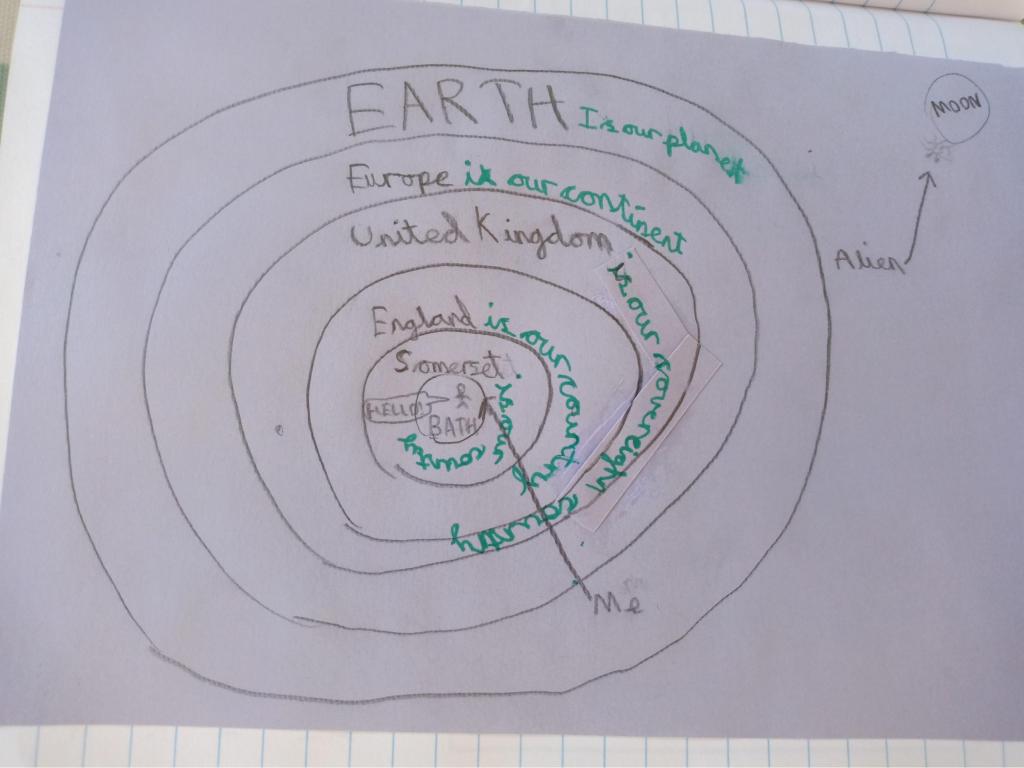 EARTH Is our planet
MOON
Europe is our continent
United Kingdom is our sovereight country
Alien
England is our country
Somerset is our county
HELLO
BATH
Me